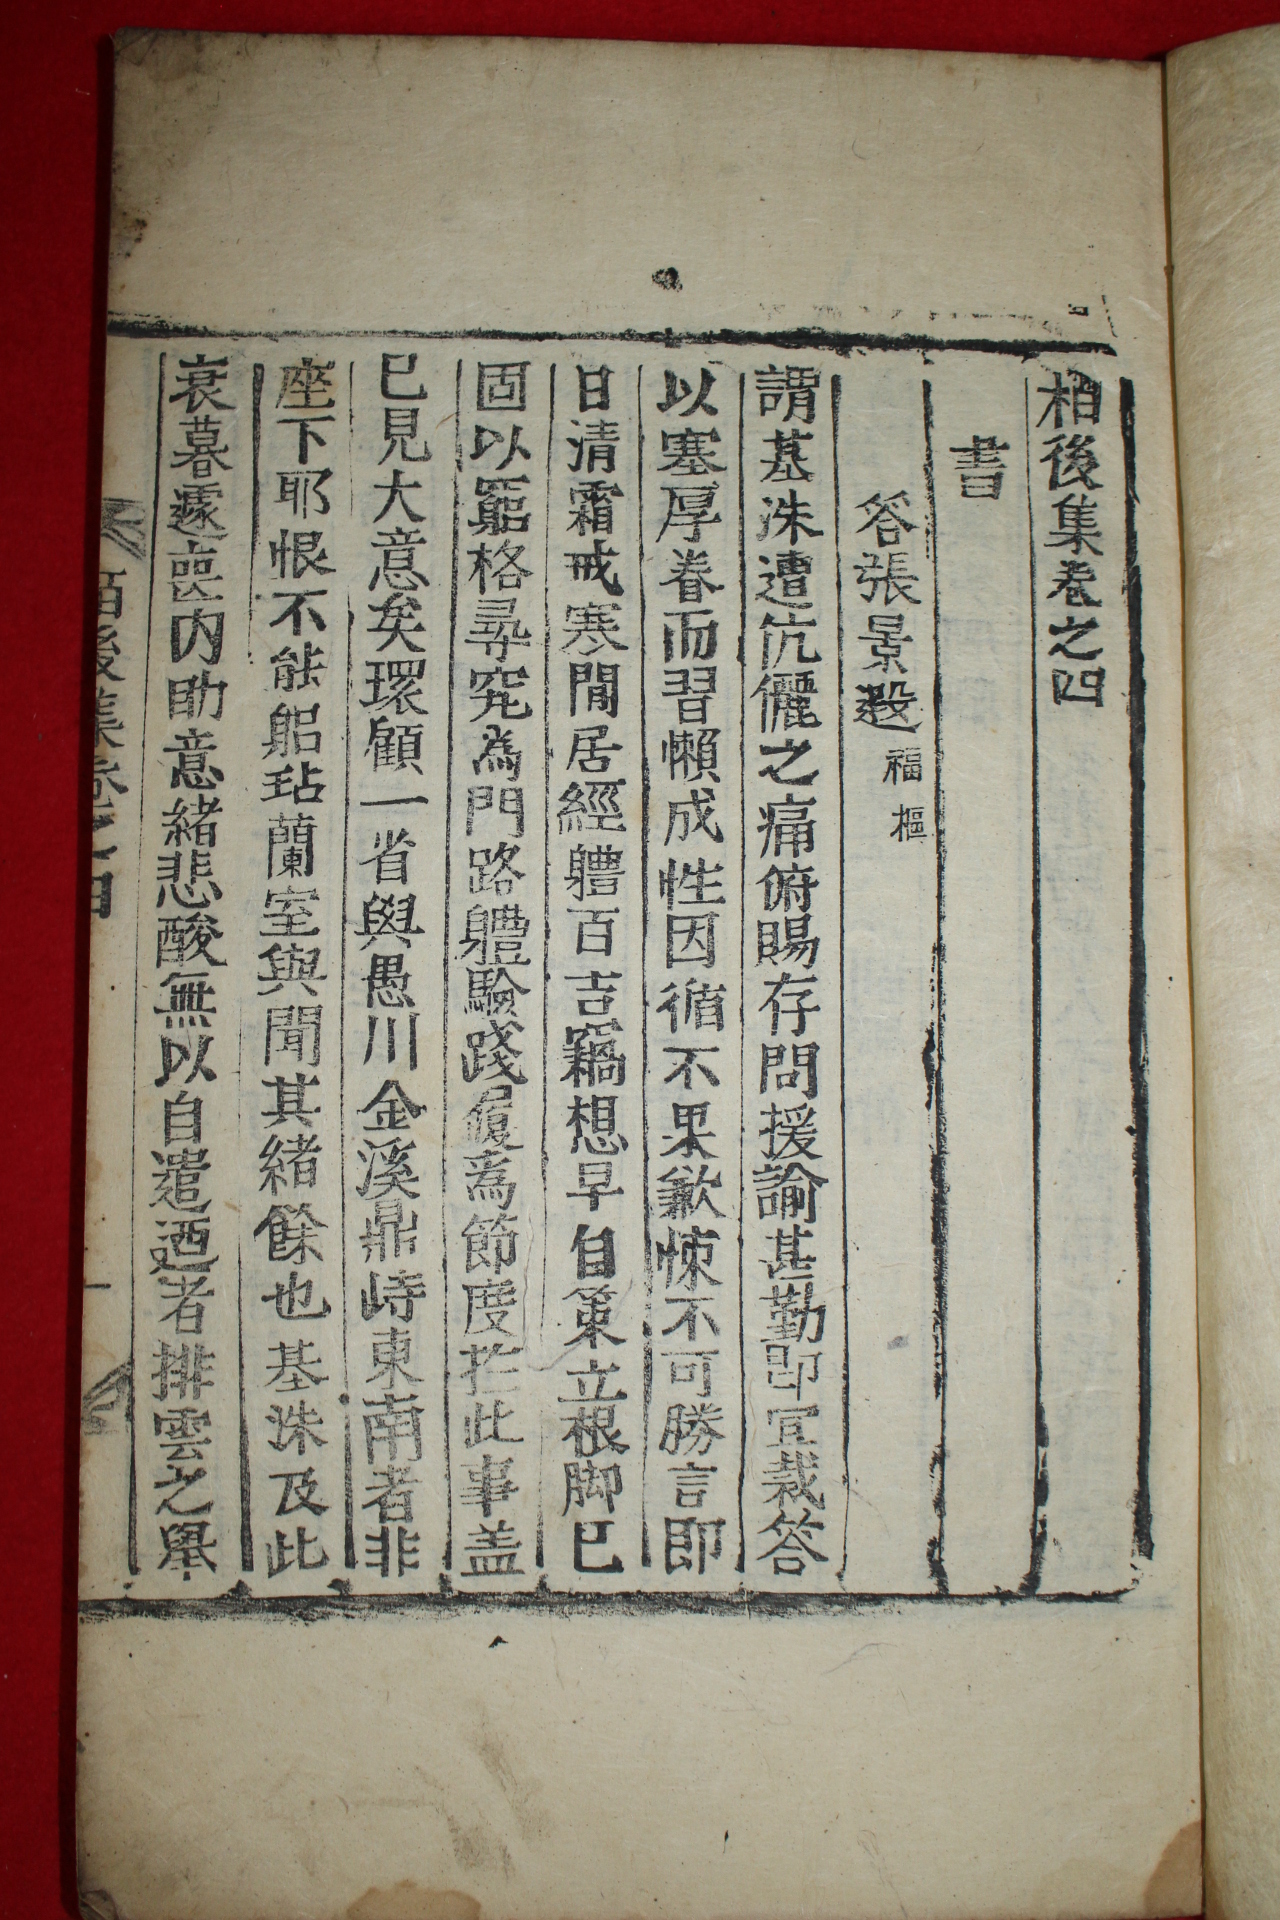 栢後集卷之四
書
答張景遐福樞
謂基洙遭伉儷之痛俯賜存問援諭甚勤卽宜裁答
以塞厚眷而習懶成性因循不果歉悚不可勝言卽
日清霜戒寒閒居經軆百吉竊想早自策立根脚已
固以窮格尋究爲門路軆驗踐履爲節度於此事盖
已見大意矣環顧一省與愚川金溪鼎峙東南者非
座下耶恨不能躳玷蘭室與聞其緖餘也基洙及此
衰暮遽喪內助意緖悲酸無以自遣迺者排雲之擧
栢後集卷之四
一